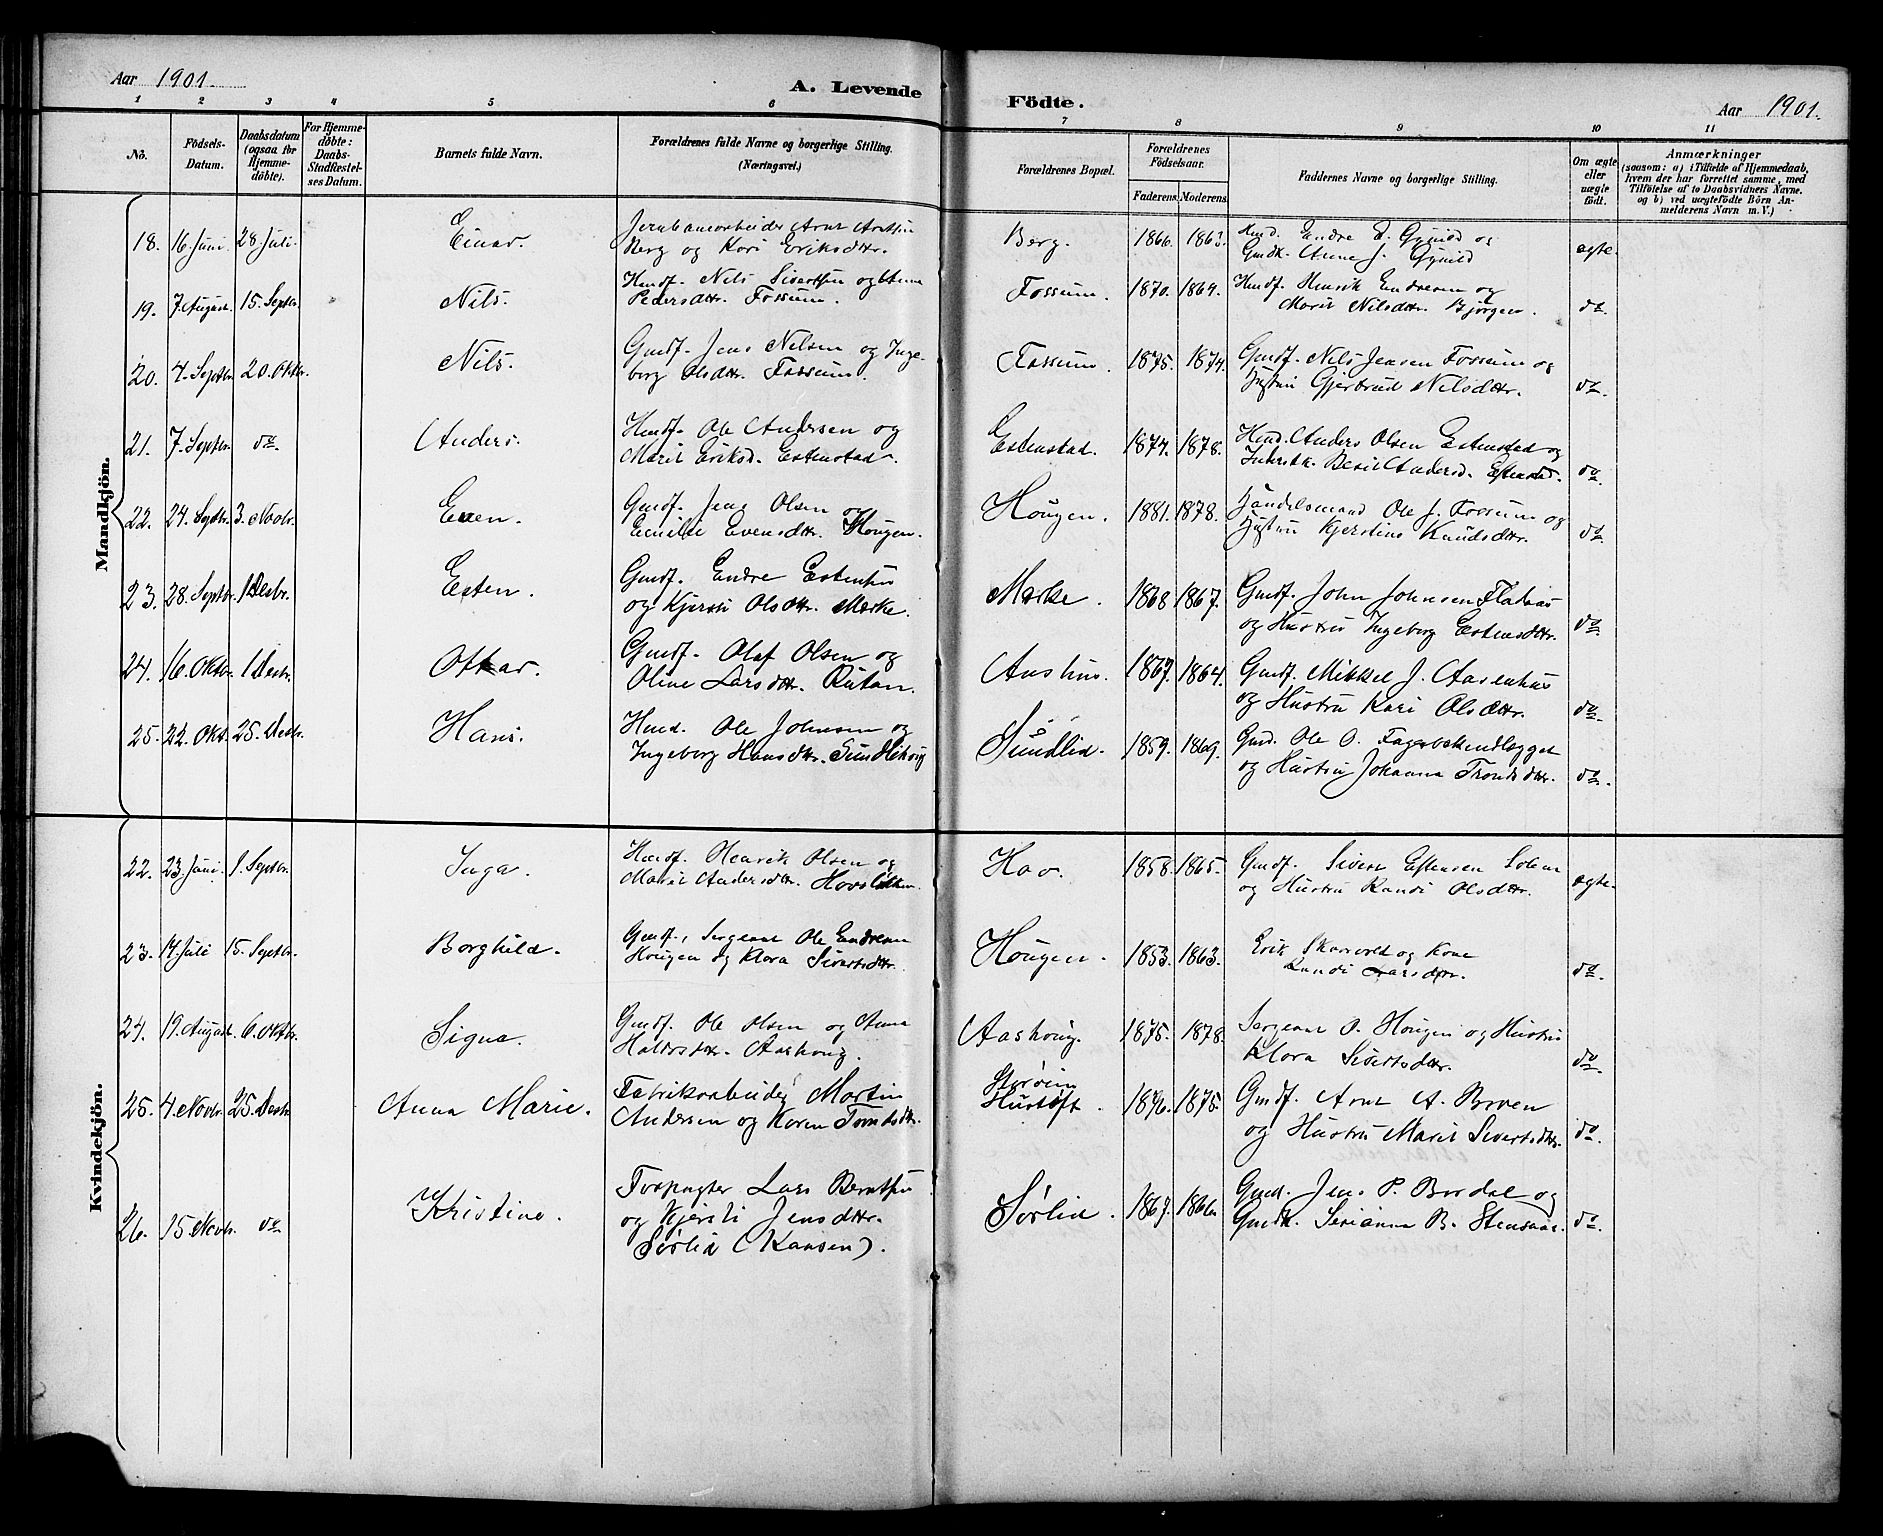 Aar 1901.
A. Levende
Födte.
Aar 1901.
1 2 3 4 5 6 7 8 9 10 11
No.
Födsels-
Datum.
Daabsdatum
(ogsaa for
Hjemme-
döbte).
For Hjemme-
döbte:
Daabs-
Stadfæstel-
ses Datum.
Barnets fulde Navn.
Forældrenes fulde Navne og borgerlige Stilling.
(Næringsvei.)
Forældrenes Bopæl.
Forældrenes
Födselsaar.
Faderens. Moderens.
Faddernes Navne og borgerlige Stilling.
Om ægte
eller
uægte
födt.
Anmærkninger
(saasom: a) i Tilfælde af Hjemmedaab,
hvem der har forrettet samme, med
Tilföielse af to Daabsvidners Navne,
og b) ved uægtefödte Börn An-
melderens Navn m. V.)
Mandkjön.
18. 16 Juni. 28 Juli. Einar. Jernbanearbeider Arnt Arntsen
Berg og Kari Eriksdtr. Berg. 1866. 1863. Endre E. Gynild og
Gmdk. Anne J. Gynild ægte.
19. 7. August. 15. Septbr. Nils. Hmdf. Nils Sivertsen og
Pedersdtr. Fossum. Fossum. 1870. 1869. Hmdf. Henrik Endresen og
Marit Nilsdtr. Bjørgen. do.
20. 4. Septbr. 20. Oktbr. Nils. Gmdf. Jens Nilsen og Inge-
borg Olsdtr. Fossum. Fossum. 1875. 1874. Gmdf. Nils Jensen Fossum og
Hustru Gjertrud Nilsdtr. do.
21. 7. Septbr. do Anders. Hmdf. Ole Andersen og
Marit Eriksd. Estenstad. Estenstad. 1874. 1878. Hmd. Anders Olsen Estenstad og
Beret Andersd. Estenstad. do.
22. 24. Septbr. 3. Novbr. Even. Gmdf. Jens Olsen og
Emilie Evensdtr. Hougen. Hougen. 1881. 1878. Handelsmand Ole J. Fossum og
Hustru Kjerstine Knudsdtr. do.
23. 28. Septbr. 1 Desbr. Esten. Gmdf. Endre Estensen
og Kjersti Olsdtr. Mærke. Mærke. 1868 1867. Gmdf. John Johnsen Flataas
og Hustru Ingeborg Estensdtr. do.
24. 16. Oktbr. 1 Desbr. Otkar. Gmdf. Olaf Olsen og
Oline Larsdtr. Rutan. Aushus. 1867. 1864. Gmdf. Mikkel J. Aasenhus
og Hustru Kari Olsdtr. do.
25. 22. Okt. 25. Desbr. Hans. Hmd. Ole Johnsen og
Ingeborg Hansdtr. Sundlid. 1859. 1869. Gmd. Ole O. Fagerbekmdlegget
og Hustru Johanna Trondsdtr. do.
Kvindekjön.
22. 23. Juni. 1. Septbr. Inga. Hmdf. Henrik Olsen og
Marit Andersdtr. Hov. 1858. 1865. Gmdf. Sivert Estensen Solem
og Hustru Randi Olsdtr. ægte.
23. 14. Juli 15. Septbr. Borghild. Gmdf., Sergeant Ole Endresen
Hougen og Klara Sivertsdtr. Hougen. 1853. 1863. Erik Skarvolt og Kone
Randi Larsdtr. do.
24. 19. August. 6. Oktbr. Signa. Gmdf. Ole Olsen og Anna
Haldosdtr. Aashoug. Aashoug. 1875. 1878. Sergeant O. Hougen og Hustru
Klara Sivertsdtr. do.
25. 4. Novbr. 25. Desbr. Anna Marie. Fabrikarbeider Martin
Andersen og Karen Tomtsdtr. Storøien
Hustoft. 1876. 1875. Gmdf. Arnt A. Boven
og Hustru Marit Sivertsdtr. do.
26. 15. Novbr. do Kristine. Forpagter Lars Berntsen
og Kjersti Jensdtr.
Sørlid (Kansen). Sørlid. 1867. 1866. Gmd. Jens P. Bordal og
Gmdk. Serianna B. Stensaas. do.